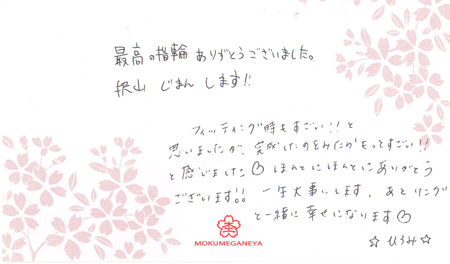 最高の指輪ありがとうございました。
沢山 じまん します!!
フィッティング時もすごい!!と
思いましたが、完成したのをみたらもってすごい!!
と感じました♡ ほんとにほんとにありがとう
ございます!! 一生大事にします。あとリングと
一緒に幸せになります♡
☆ ひろみ ☆
MOKUMEGANEYA